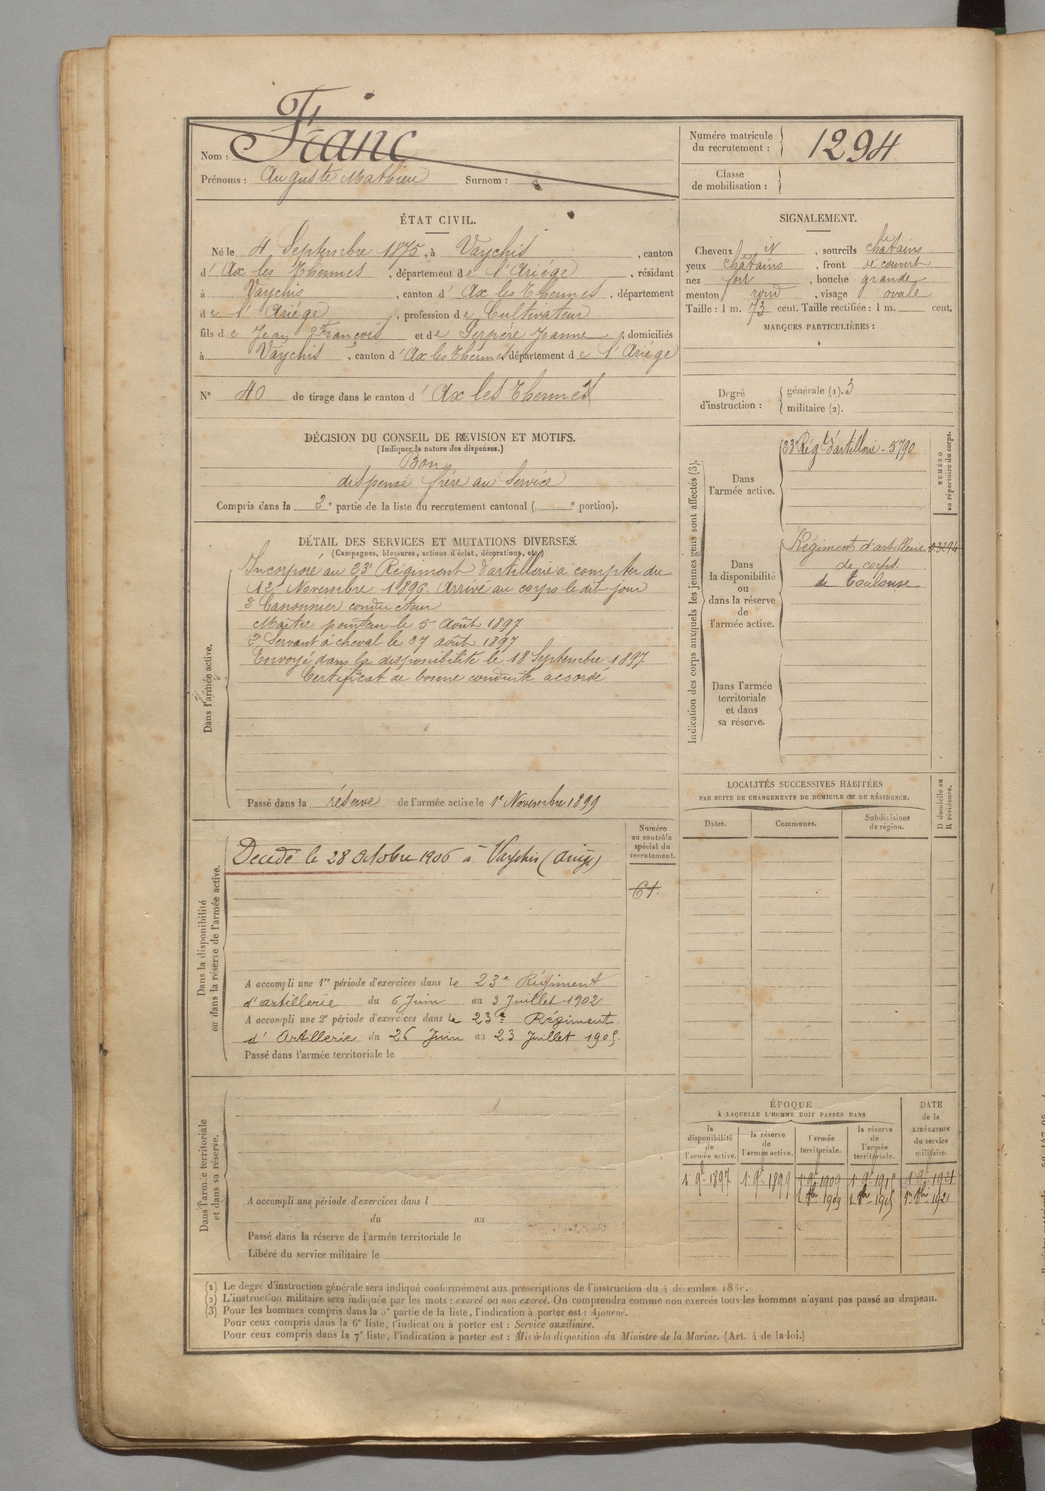 Nom : Franc
Prénoms : Auguste Mathieu Surnom :
Numéro matricule du recrutement : 1294
Classe de mobilisation :
ÉTAT CIVIL.
Né le 4 Septembre 1875, à Vaychis, canton
d'Ax les Thermes, département de l'Ariége, résidant
à Vaychis, canton d'Ax les Thermes, département
de l'Ariége, profession de Cultivateur
fils de Jean François et de Serpére Jeanne, domiciliés
à Vaychis, canton d'Ax les Thermes département de l'Ariége
N° 40 de tirage dans le canton d'Ax les Thermes
DÉCISION DU CONSEIL DE REVISION ET MOTIFS.
(Indiquer la nature des dispenses.)
Bon
dispensé frère au Service
Compris dans la 2e partie de la liste du recrutement cantonal ( e portion).
DÉTAIL DES SERVICES ET MUTATIONS DIVERSES.
(Campagnes, blessures, actions d'éclat, décorations, etc.)
Dans l'armée active.
Incorporé au 23e Régiment d'artillerie à compter du
12 Novembre 1896. Arrivé au corps le dit jour
2e Canonnier conducteur
Maitre pointeur le 5 Août 1897
2e Servant à cheval le 27 août 1897
Envoyé dans la disponibilité le 18 Septembre 1897
Certificat de bonne conduite accordé
Passé dans la réserve de l'armée active le 1er Novembre 1899
SIGNALEMENT.
Cheveux et, sourcils châtains
yeux châtains, front découvert
nez fort, bouche grande
menton rond, visage ovale
Taille : 1 m. 73 cent. Taille rectifiée : 1 m. cent.
MARQUES PARTICULIÈRES :
Degré d'instruction :
générale (1). 3
militaire (2).
Indication des corps auxquels les jeunes gens sont affectés (3).
NUMÉRO au répertoire du corps.
Dans l'armée active.
23e Régt d'artillerie - 5790
Dans la disponibilité ou dans la réserve de l'armée active.
Régiment d'artillerie
de corps
de Toulouse
Dans l'armée territoriale et dans sa réserve.
LOCALITÉS SUCCESSIVES HABITÉES
PAR SUITE DE CHANGEMENTS DE DOMICILE OU DE RÉSIDENCE.
Dates.
Communes.
Subdivisions de région.
D domicile ou R résidence.
Dans la disponibilité ou dans la réserve de l'armée active.
Numéro au contrôle spécial du recrutement.
Décédé le 28 Octobre 1906 à Vaychis (Ariège)
61.
A accompli une 1re période d'exercices dans le 23e Régiment
d'artillerie du 6 Juin au 3 Juillet 1902
A accompli une 2e période d'exercices dans le 23e Régiment
d'Artillerie du 26 Juin au 23 Juillet 1905.
Passé dans l'armée territoriale le
Dans l'armée territoriale et dans sa réserve.
A accompli une période d'exercices dans l
du au
Passé dans la réserve de l'armée territoriale le
Libéré du service militaire le
ÉPOQUE
À LAQUELLE L'HOMME DOIT PASSER DANS
la disponibilité de l'armée active.
la réserve de l'armée active.
l'armée territoriale.
la réserve de l'armée territoriale.
DATE de la LIBÉRATION du service militaire.
1 9bre 1897 1 9bre 1899 1 9bre 1909 1 9bre 1915 1 9bre 1921
1 8bre 1909 1 8bre 1915 1er 8bre 1921
(1) Le degré d'instruction générale sera indiqué conformément aux prescriptions de l'instruction du 4 décembre 188
(2) L'instruction militaire sera indiquée par les mots : exercé ou non exercé. On comprendra comme non exercés tous les hommes n'ayant pas passé au drapeau.
(3) Pour les hommes compris dans la 5e partie de la liste, l'indication à porter est : Ajourné.
Pour ceux compris dans la 6e liste, l'indication à porter est : Service auxiliaire.
Pour ceux compris dans la 7e liste, l'indication à porter est : Mis à la disposition du Ministre de la Marine. (Art. 4 de la loi.)